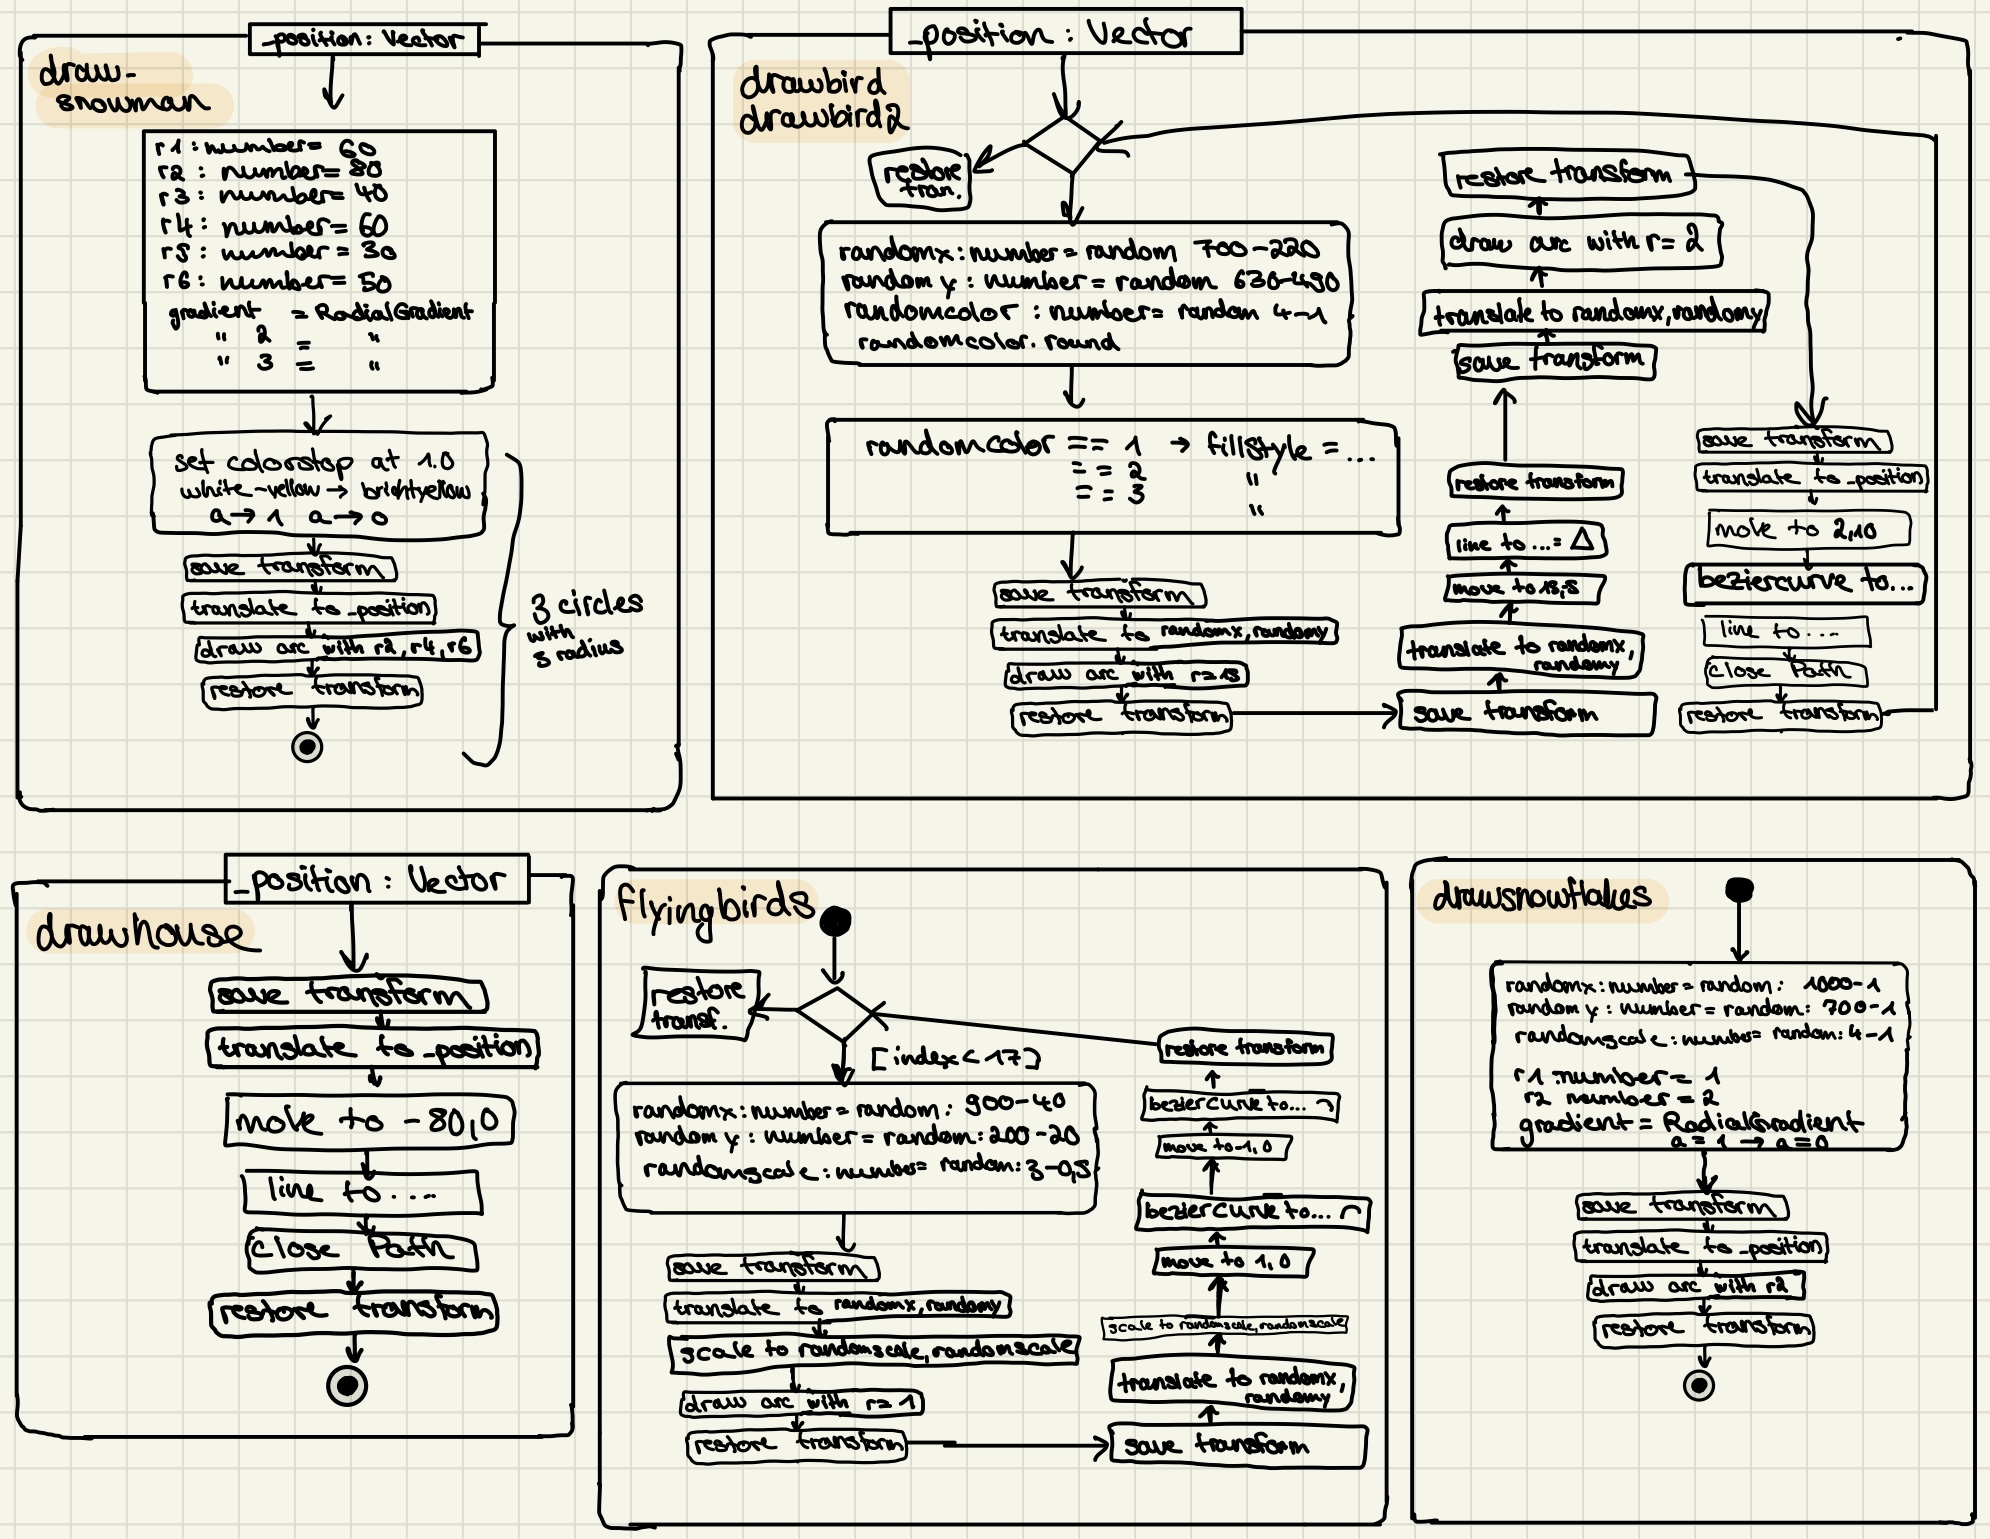 _position: Vector
draw-
snowman
r1: number= 60
r2: number= 80
r3: number= 40
r4: number= 60
r5: number = 30
r6: number= 50
gradient = RadialGradient
" 2 = "
" 3 = "
set colorstop at 1.0
white-yellow → brightyellow
a → 1 a → 0
save transform
translate to _position
draw arc with r2, r4, r6
restore transform
3 circles
with
5 radius
_position: Vector
drawbird
drawbird2
restore
tran.
randomx: number = random 700-220
random y: number = random 630-490
randomcolor : number= random 4-1
randomcolor.round
randomcolor == 1 → fillstyle = ...
== 2 "
== 3 "
save transform
translate to randomx, randomy
draw arc with r=15
restore transform
save transform
translate to randomx,
randomy
move to 15,5
line to ... = Δ
restore transform
save transform
translate to randomx, randomy
draw arc with r= 2
restore transform
save transform
translate to _position
move to 2,10
beziercurve to...
line to ...
close Path
restore transform
_position: Vector
drawhouse
save transform
translate to _position
move to -80,0
line to ....
close Path
restore transform
flyingbirds
restore
transf.
[index < 17]
randomx: number = random: 900-40
random y: number = random: 200-20
randomscale: number= random: 3-0,5
save transform
translate to randomx, randomy
scale to randomscale, randomscale
draw arc with r= 1
restore transform
save transform
translate to randomx,
randomy
scale to randomscale, randomscale
move to 1, 0
bezierCurve to...
move to -1, 0
bezierCurve to...
restore transform
drawsnowflakes
randomx: number = random: 1000-1
random y: number = random: 700-1
randomscale: number= random: 4-1
r1: number = 1
r2 number = 2
gradient = RadialGradient
a = 1 → a = 0
save transform
translate to _position
draw arc with r2
restore transform